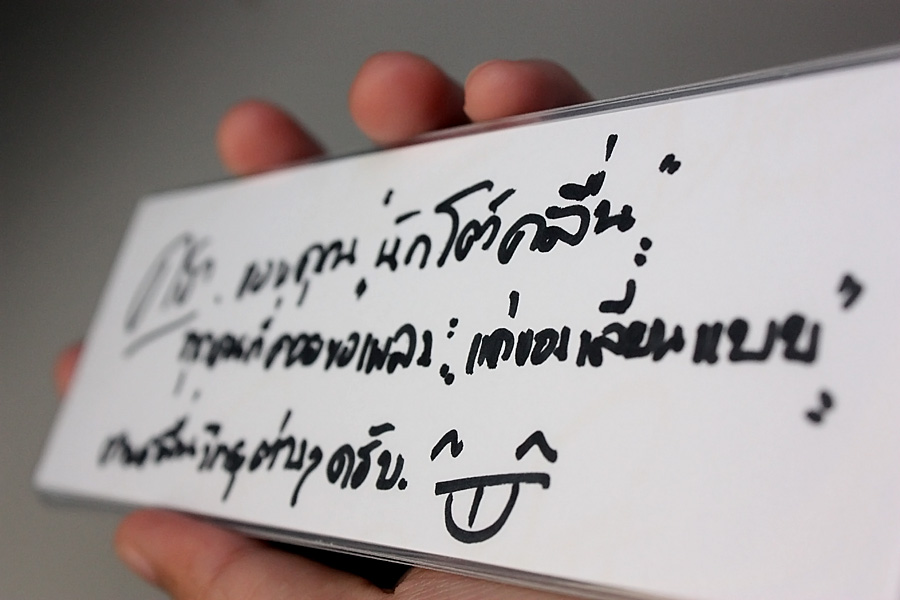 ขอบคุณ "นักโต้คลื่น"
ทุกคนที่คอยขอเพลง "แค่ของเลียนแบบ"
ผ่านคลื่นวิทยุต่างๆ ครับ.